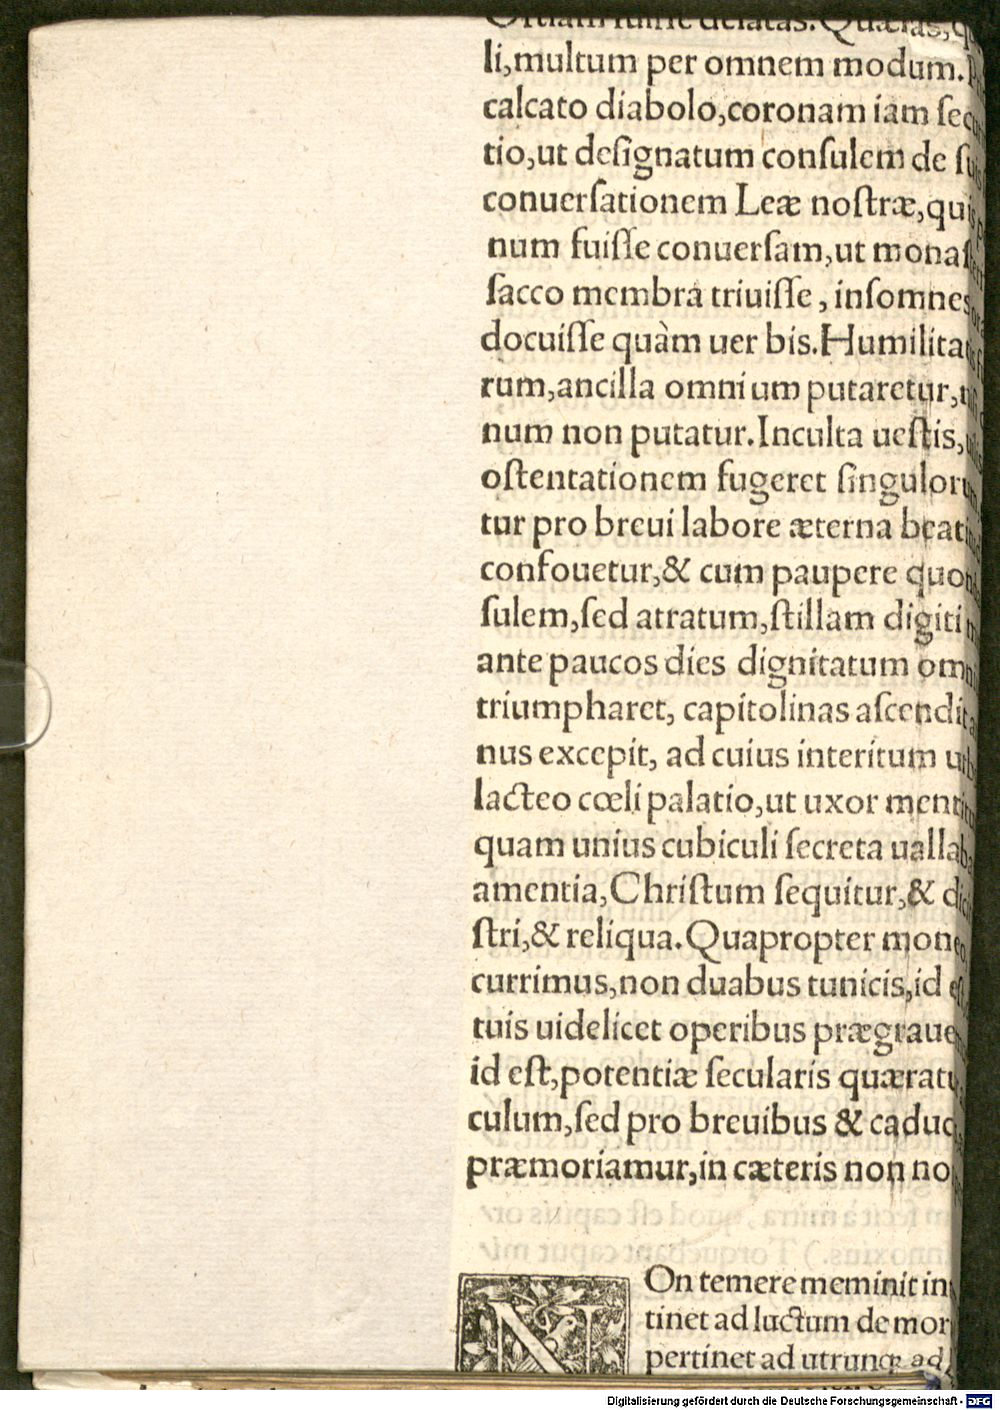 Ostiam fuisse delatas. Quæras,
li,multum per omnem modum.
calcato diabolo,coronam iam ſecu
tio,ut deſignatum conſulem de ſuis
conuerſationem Leæ noſtræ,quis
num fuiſſe conuerſam,ut monaſteri
ſacco membra triuiſſe, inſomnes
docuiſſe quàm uer bis.Humilita
rum,ancilla omnium putaretur,
num non putatur.Inculta ueſtis,
oſtentationem fugeret ſingulorum
tur pro breui labore æterna beati
confouetur,& cum paupere quon
ſulem,ſed atratum,ſtillam digiti
ante paucos dies dignitatum omni
triumpharet, capitolinas aſcendit
nus excepit, ad cuius interitum urb
lacteo cœli palatio,ut uxor mentit
quam unius cubiculi ſecreta uallab
amentia,Chriſtum ſequitur,& dici
ſtri,& reliqua.Quapropter moneo,
currimus,non duabus tunicis,id eſt,
tuis uidelicet operibus prægraue
id eſt,potentiæ ſecularis quæratu
culum,ſed pro breuibus & caduc
præmoriamur,in cæteris non no
NOn temere meminit in
tinet ad luctum de mor
pertinet ad utrunqꝫ ad
Digitalisierung gefördert durch die Deutsche Forschungsgemeinschaft - DFG